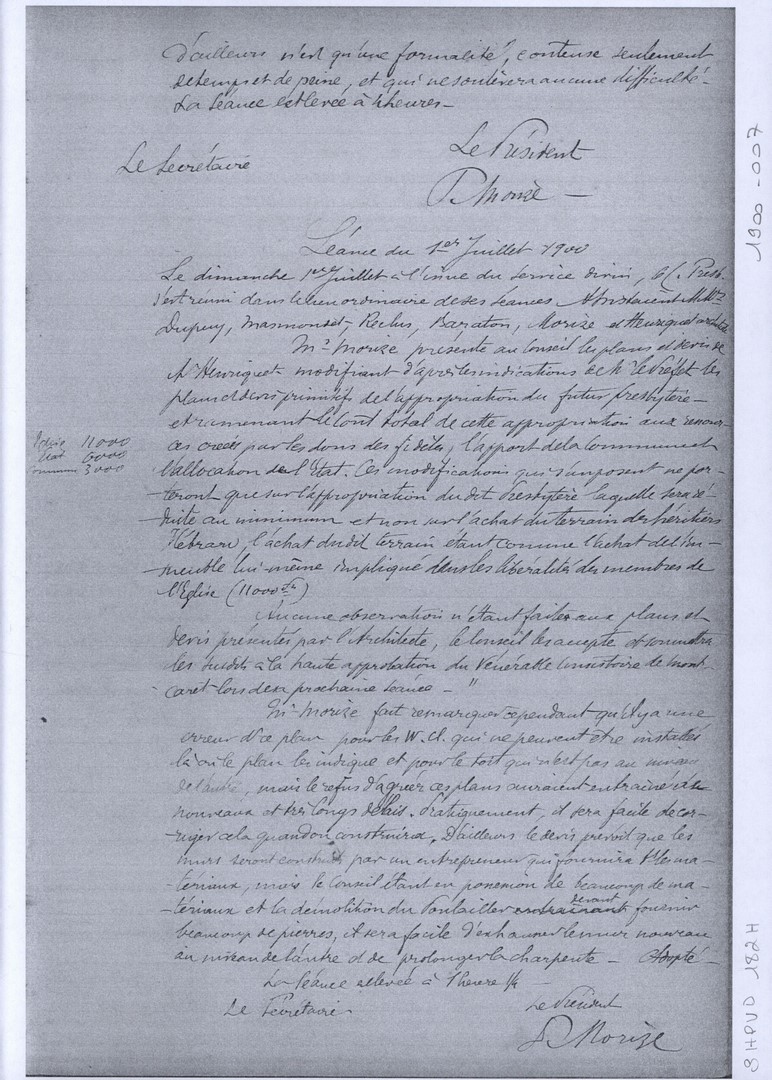 d'ailleurs n'est qu'une formalité, couteuse seulement
de temps et de peine, et qui ne soulèvera aucune difficulté.
La séance est levée à 4 heures –
Le Président
Le Secrétaire
P. Morize –
Séance du 1er Juillet 1900
Le dimanche 1er Juillet à l'issue du service divin, le C. Presb.
s'est réuni dans le lieu ordinaire de ses séances. Assistaient MMrs
Dupuy, Masmontet, Reclus, Baraton, Morize et Henriquet architecte
Mr Morize présente au Conseil les plans et devis de
Mr Henriquet modifiant d'après les indications de Mr le Préfet les
plans et devis primitifs de l'appropriation du futur presbytère –
et ramenant le coût total de cette appropriation aux ressour-
Eglise 11000
Etat 6000
Commune 3000
ces créées par les dons des fidèles, l'apport de la Commune et
l'allocation de l'Etat. Ces modifications qui s'imposent ne por-
teront que sur l'appropriation du dit Presbytère laquelle sera ré-
duite au minimum et non sur l'achat du terrain des héritiers
Hébrard, l'achat du dit terrain étant comme l'achat de l'im-
meuble lui-même impliqué dans les libéralités des membres de
l'Eglise (11000 frs)
Aucune observation n'étant faite aux plans et
devis présentés par l'Architecte, le Conseil les accepte et soumettra
les susdits à la haute approbation du Vénérable Consistoire de Mont-
caret lors de sa prochaine séance – "
Mr Morize fait remarquer cependant qu'il y a une
erreur d ce plan pour les W. Cl. qui ne peuvent être installés
là où le plan les indique et pour le toit qui n'est pas au niveau
de l'autre, mais le refus d'agréer ces plans auraient entraîné de
nouveaux et très longs délais. Pratiquement, il sera facile de cor-
riger cela quand on construira. D'ailleurs le devis prévoit que les
murs seront construits par un entrepreneur qui fournira les ma-
tériaux, mais le Conseil étant en possession de beaucoup de ma-
tériaux et la démolition du Poulailler devant fournir
beaucoup de pierres, il sera facile d'exhausser le mur nouveau
au niveau de l'autre et de prolonger la charpente – Adopté –
La Séance est levée à 1 heure 1/4
Le Président
Le Secrétaire
P. Morize
1900-007
SHPVD 182H